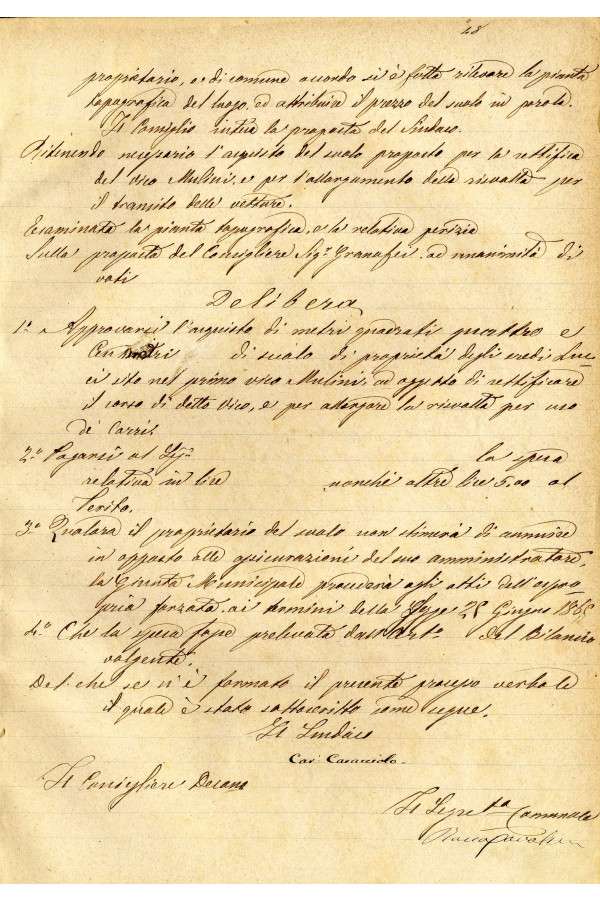 28
proprietario, e di comune accordo si è fatta rilevare la pianta
topografica del luogo, ed attribuire il prezzo del suolo in parola.
Il Consiglio intesa la proposta del Sindaco.
Ritenendo necessario l'acquisto del suolo proposto per la rettifica
del vico Mulini, e per l'allargamento della risvolta per
il transito delle vetture.
Esaminata la pianta topografica, e la relativa perizia
Sulla proposta del Consigliere Sigr Granafei ad unanimità di
voti
Delibera
1º Approvarsi l'acquisto di metri quadrati quattro e
Centimetri di suolo di proprietà degli eredi
sito nel primo vico Mulini, ad oggetto di rettificare
il corso di detto vico, e per allargare la risvolta per uso
de' Carri.
2º Pagarsi al Sigr la spesa
relativa in lire nonchè altre lire 5,00 al
Perito.
3º Qualora il proprietario del suolo non stimerà di annuire
in opposto alle assicurazioni del suo amministratore,
la Giunta Municipale procederà agli atti dell'espro-
pria forzata, ai termini della Legge 25 Giugno 1865
4º Che la spesa fosse prelevata dall'Artº del Bilancio
volgente.
Del che se n'è formato il presente processo verbale
il quale è stato sottoscritto come segue.
Il Sindaco
Cav. Caracciolo
Il Consigliere Decano
Il Segreta Comunale